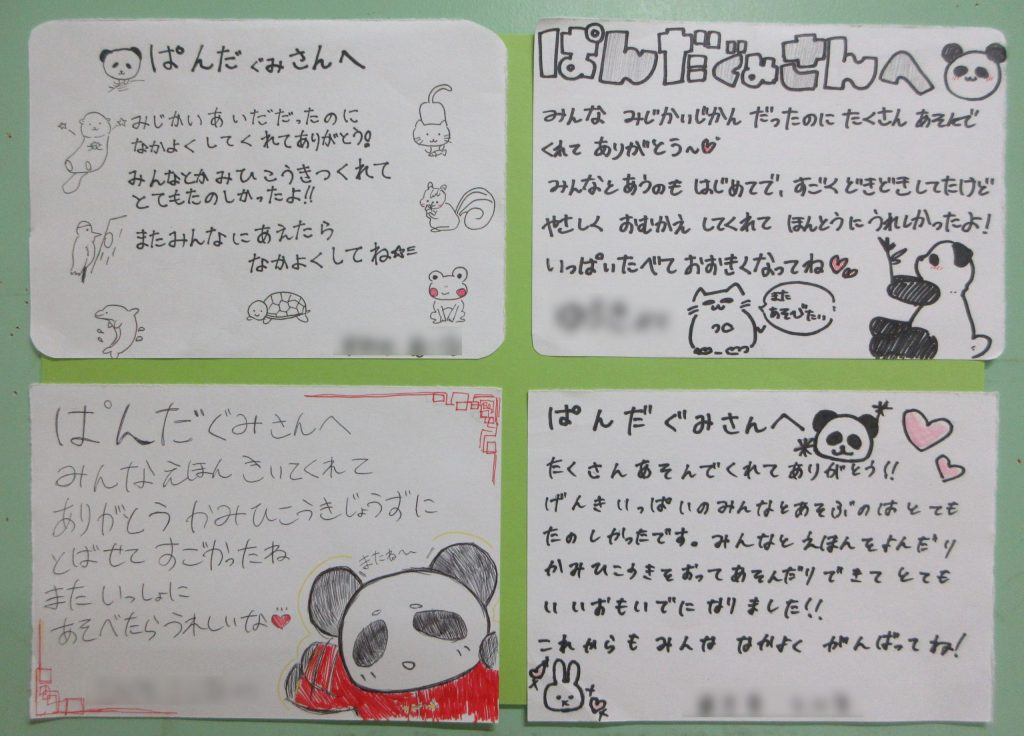 ぱんだぐみさんへ
みじかいあいだだったのに
なかよくしてくれてありがとう!
みんなとかみひこうきつくれて
とてもたのしかったよ!!
またみんなにあえたら
なかよくしてね☆=
ぱんだぐみさんへ
みんな みじかいじかん だったのに たくさん あそんで
くれて ありがとう〜♡
みんなとあうのも はじめてで、すごくどきどきしてたけど
やさしく おむかえ してくれて ほんとうに うれしかったよ!
いっぱいたべて おおきくなってね♡
また
あそびたい
ぱんだぐみさんへ
みんなえほん きいてくれて
ありがとう かみひこうきじょうずに
とばせて すごかったね
また いっしょに
あそべたら うれしいな♥
またね〜
ぱんだぐみさんへ
たくさんあそんでくれてありがとう!!
げんきいっぱいのみんなとあそぶのはとても
たのしかったです。みんなとえほんをよんだり
かみひこうきをおってあそんだりできてとても
いいおもいでになりました!!
これからも みんな なかよく がんばってね!